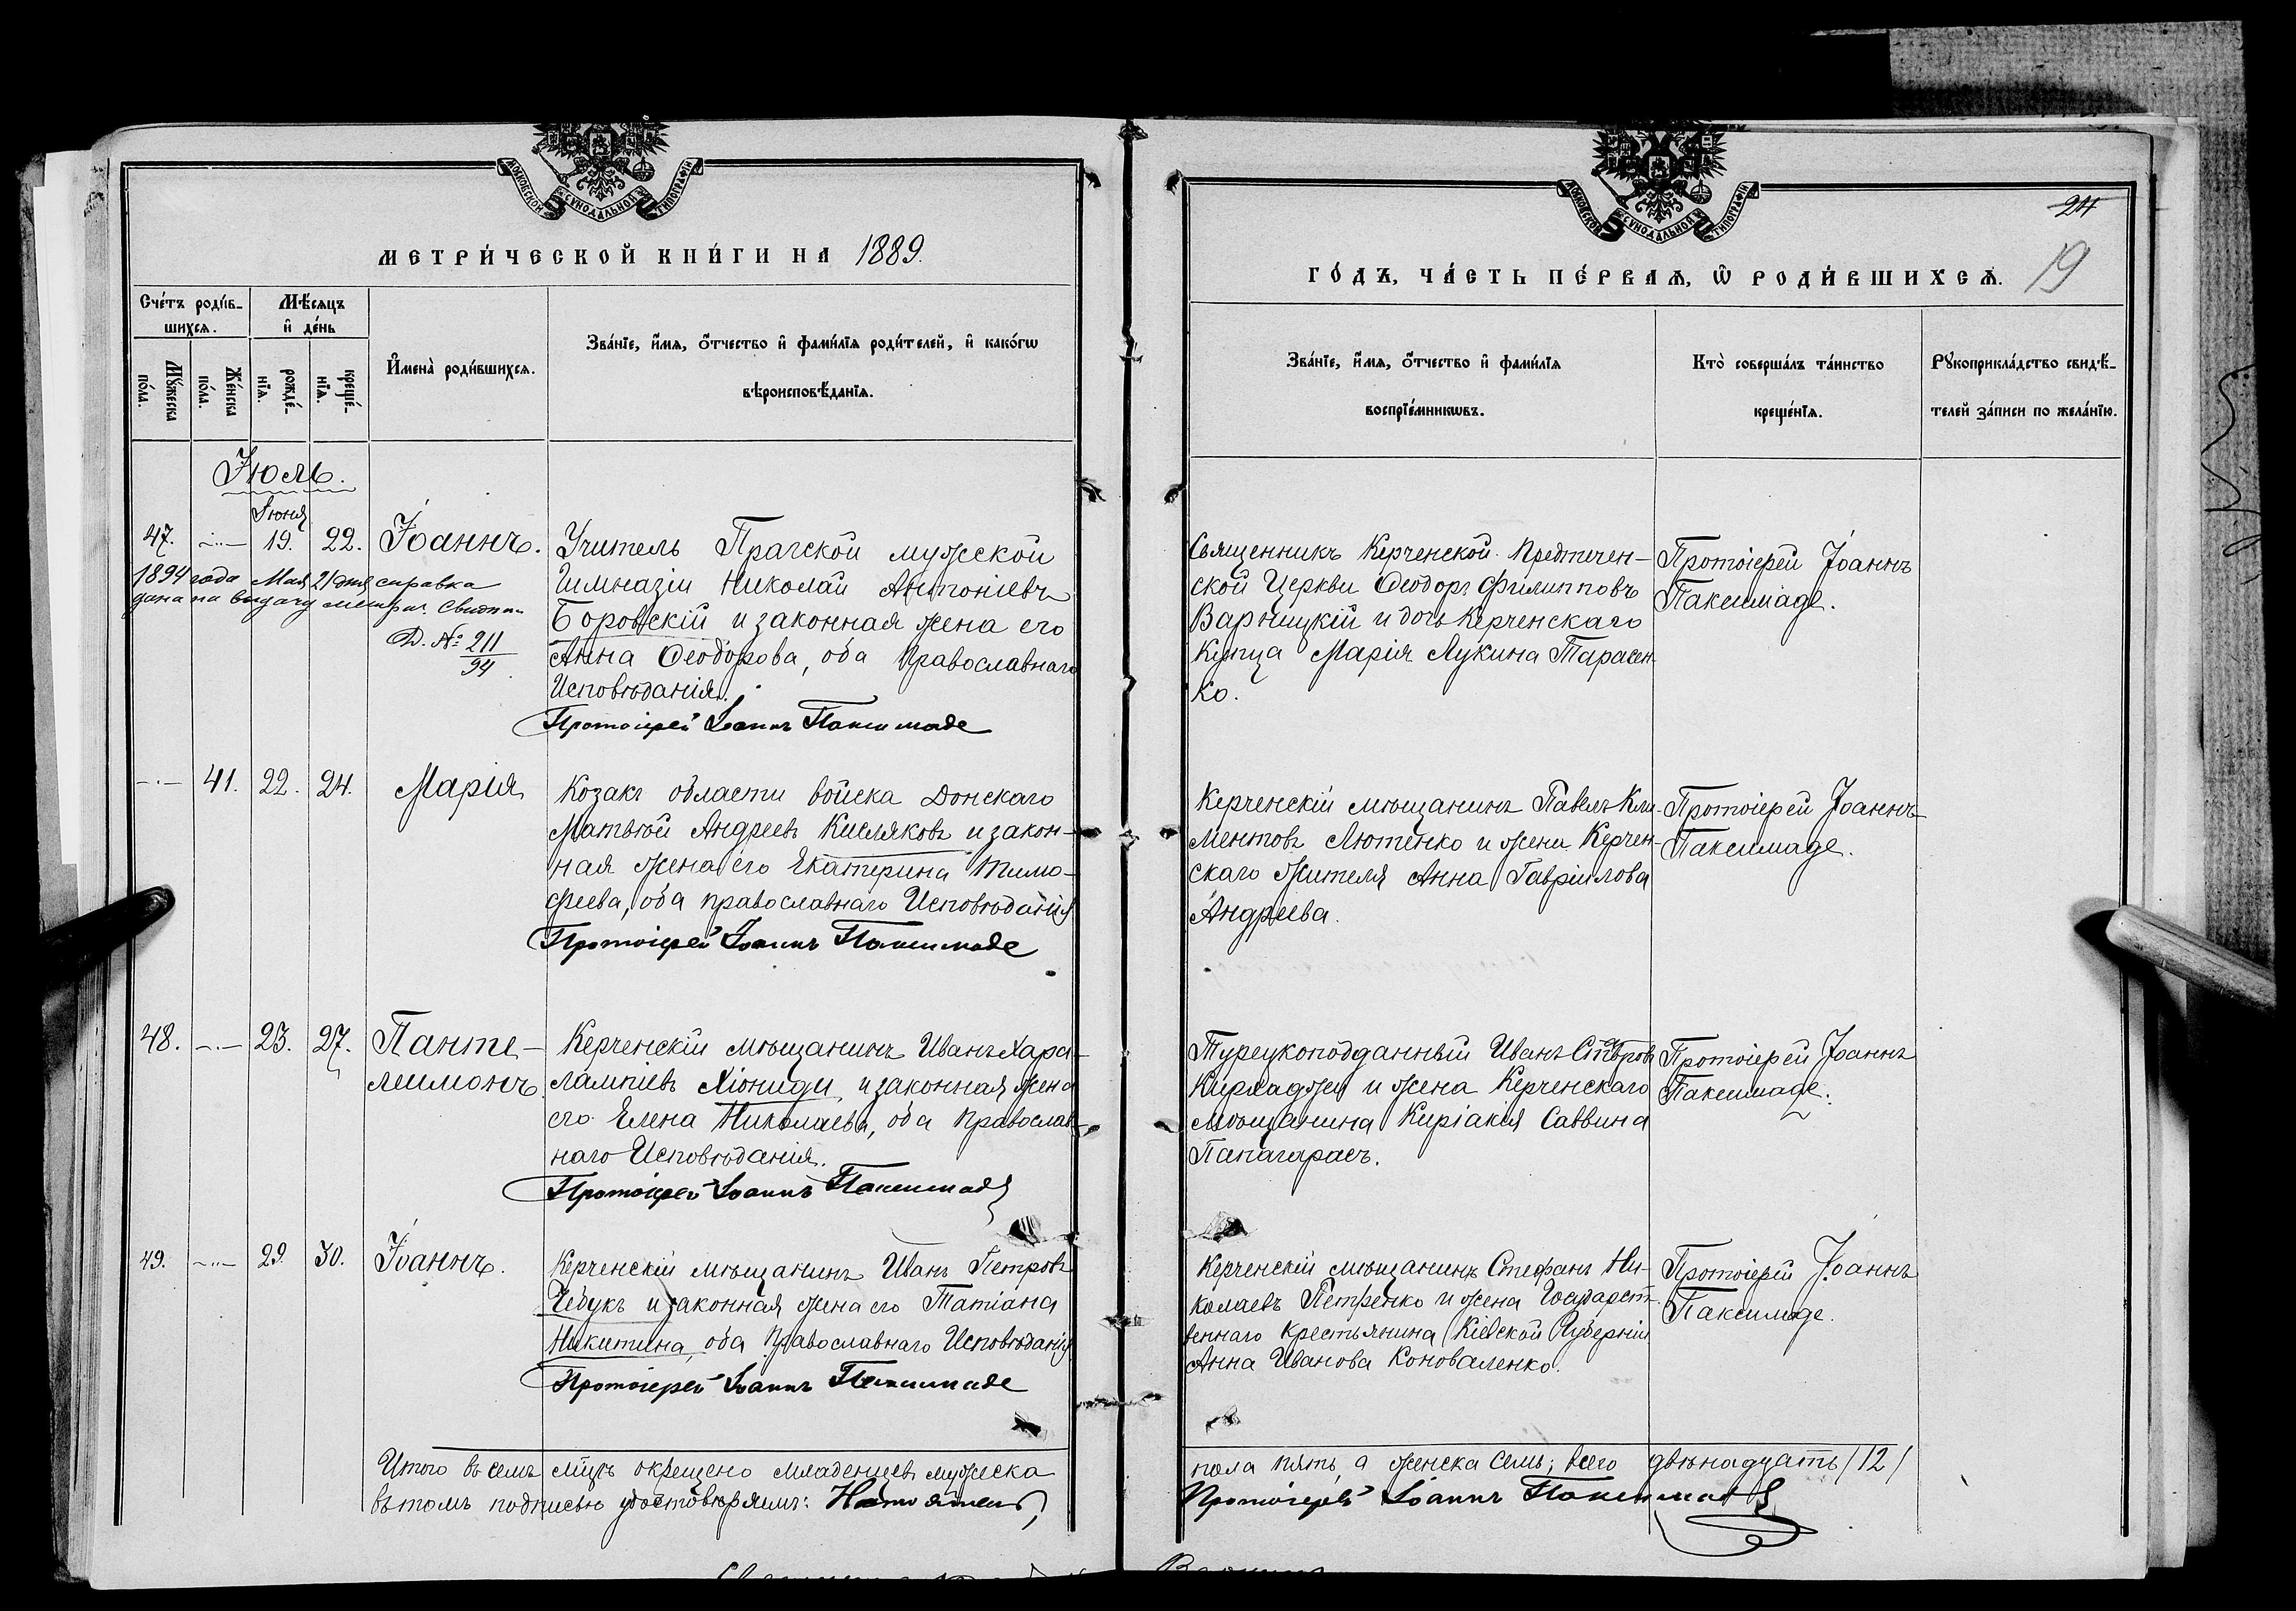 МОСКОВСКОЙ СѴНОДАЛЬНОЙ ТИПОГРАФІИ
МЕТРИ́ЧЕСКОЙ КНИ́ГИ НА 1889.
Сче́тъ роди́в-
шихсѧ.
Мѣ́сѧцъ
и҆ де́нь
Мꙋ́жеска
по́ла.
Же́нска
по́ла.
рожде́-
нїѧ.
креще́-
нїѧ.
И҆мена̀ роди́вшихсѧ.
Зва́нїе, и҆́мѧ, ѻ҆́тчество и҆ фами́лїѧ роди́телей, и҆ како́гѡ
вѣроисповѣ́данїѧ.
Іюль.
Іюня
47. 19. 22. Іоаннъ.
1894 года Мая 21 дня справка
дана на выдачу метрич. Свидт.
Д. № 211
94
Учитель Пражской мужской
Гимназіи Николай Антоніевъ
Боровскій и законная жена его
Анна Ѳеодорова, оба Православнаго
Исповѣданія.
Протоіерей Іоаннъ Паксимаде
41. 22. 24. Марія
Козакъ области войска Донскаго
Матвѣй Андреевъ Кисляковъ и закон-
ная жена его Екатерина Тимо-
феева, оба православнаго Исповѣданія
Протоіерей Іоаннъ Паксимаде
48. 23. 27. Панте-
леимонъ.
Керченскій мѣщанинъ Иванъ Хара-
лампіевъ Хіониди, и законная жена
его Елена Николаева, оба Православ-
наго Исповѣданія.
Протоіерей Іоаннъ Паксимаде
49. 29. 30. Іоаннъ.
Керченскій мѣщанинъ Иванъ Петровъ
Чебукъ и законная жена его Татіана
Никитина, оба Православнаго Исповѣданія
Протоіерей Іоаннъ Паксимаде
Итого въ семъ мцѣ окрещено младенцевъ мужеска
въ томъ подписью удостовѣряемъ: Настоятель,
МОСКОВСКОЙ СѴНОДАЛЬНОЙ ТИПОГРАФІИ
24
ГО́ДЪ, ЧА́СТЬ ПЕ́РВАѦ, Ѡ҆ РОДИ́ВШИХСѦ. 19
Зва́нїе, и҆́мѧ, ѻ҆́тчество и҆ фами́лїѧ
воспрїе́мникѡвъ.
Кто̀ соверша́лъ та́инство
креще́нїѧ.
Рꙋкоприкла́дство свидѣ́-
телей за́писи по жела́нїю.
Священникъ Керченской Предтечен-
ской Церкви Ѳеодоръ Филипповъ
Варницкій и дочь Керченскаго
Купца Марія Лукина Тарасен-
ко.
Протоіерей Іоаннъ
Паксимаде.
Керченскій мѣщанинъ Павелъ Кли-
ментовъ Лютенко и жена Керчен-
скаго жителя Анна Гавріилова
Андреева.
Протоіерей Іоаннъ
Паксимаде.
Турецкоподданный Иванъ
и жена Керченскаго
мѣщанина Киріакія Саввина
Протоіерей Іоаннъ
Паксимаде.
Керченскій мѣщанинъ Стефанъ Ни-
колаевъ Петренко и жена Государст-
веннаго крестьянина Кіевской Губерніи
Анна Иванова Коноваленко.
Протоіерей Іоаннъ
Паксимаде.
пола пять, а женска семь; всего двѣнадцать /12/
Протоіерей Іоаннъ Паксимаде